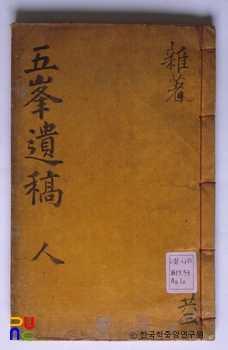 五峯遺稿
人
雜著
共三
819.53
© 한국학중앙연구원